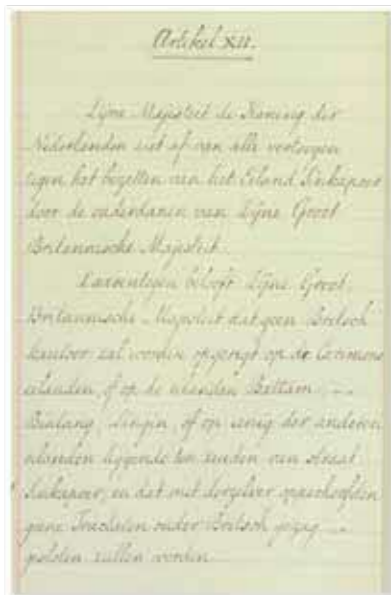 Artikel XII.
Zijne Majesteit de Koning der
Nederlanden ziet af van alle vertoogen
tegen het bezetten van het Eiland Sinkapoer
door de onderdanen van Zijne Groot
Britannische Majesteit.
Daarentegen belooft Zijne Groot
Britannische Majesteit dat geen Britsch
kantoor zal worden opgerigt op de Carimons
eilanden, of op de eilanden Battam
Bintang, Lingin, of op eenig der anderen
eilanden liggende ten zuiden van straat
Sinkapoer, en dat met derzelver opperhoofden
geene Tractaten onder Britsch gezag
gesloten zullen worden